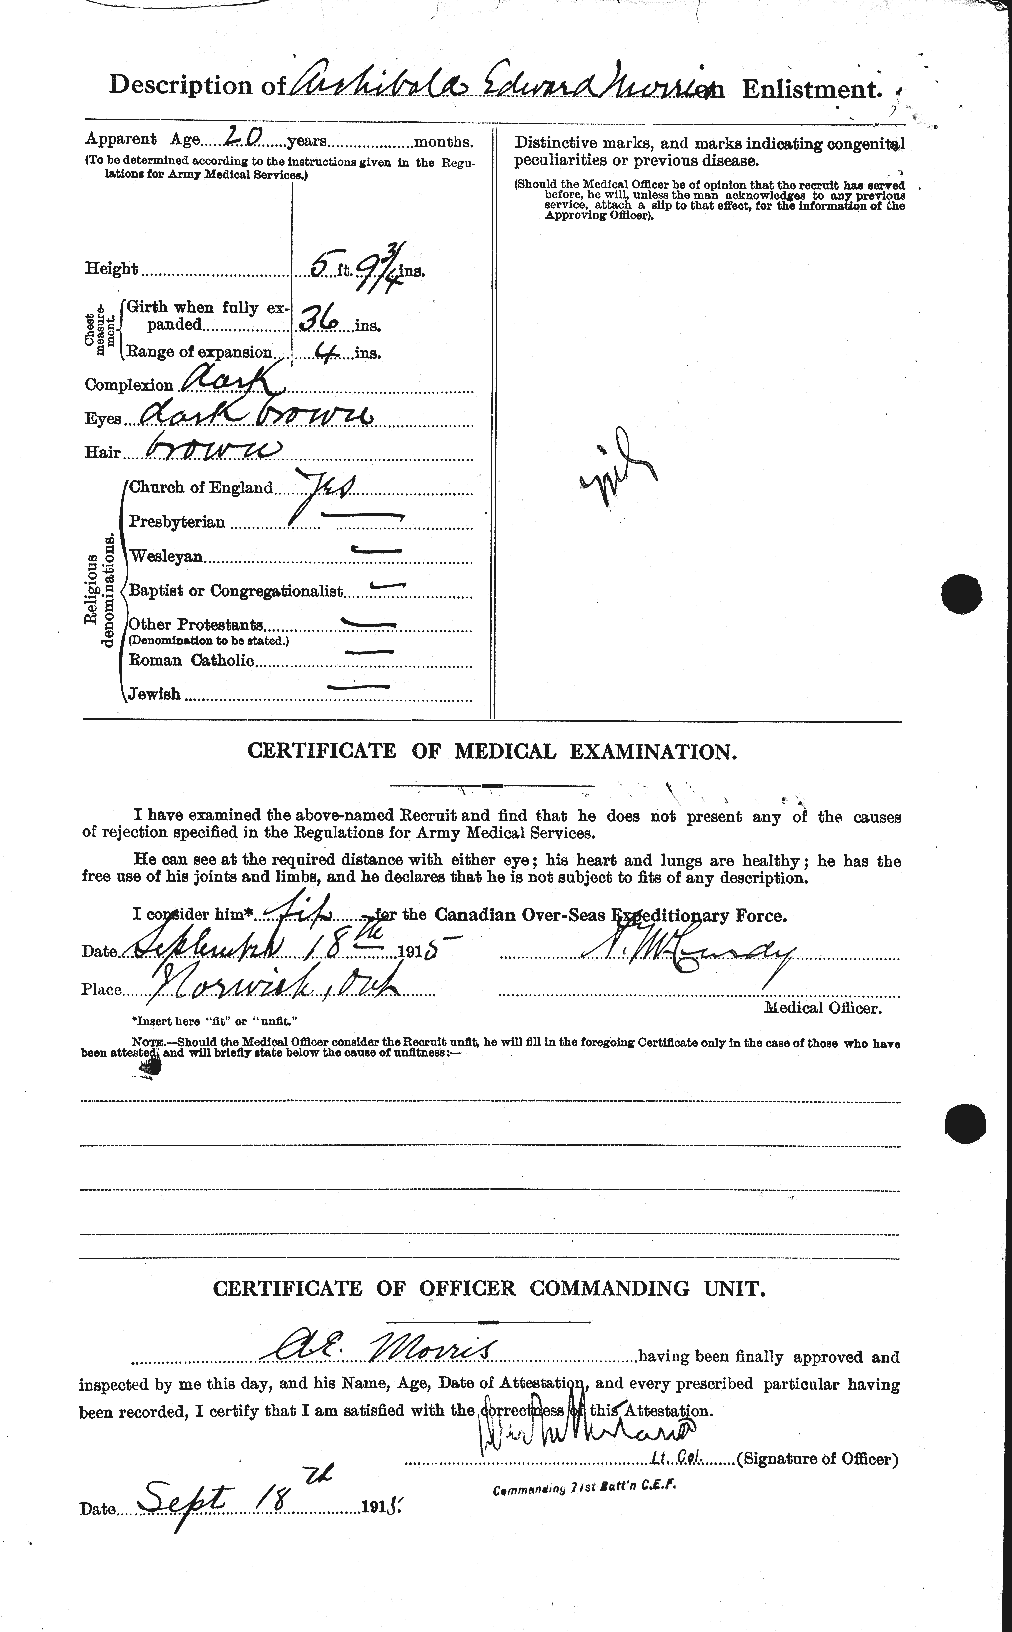 Description of Archibald Edward Morris on Enlistment.
Apparent Age 20 years months.
(To be determined according to the instructions given in the Regu-
lations for Army Medical Services.)
Height 5 ft. 9 3/4 ins.
Chest measure-ment.
Girth when fully ex-
panded 36 ins.
Range of expansion 4 ins.
Complexion dark
Eyes dark brown
Hair brown
Religious denominations.
Church of England Yes
Presbyterian —
Wesleyan —
Baptist or Congregationalist —
Other Protestants —
(Denomination to be stated.)
Roman Catholic —
Jewish —
Distinctive marks, and marks indicating congenital
peculiarities or previous disease.
(Should the Medical Officer be of opinion that the recruit has served
before, he will, unless the man acknowledges to any previous
service, attach a slip to that effect, for the information of the
Approving Officer).
nil
CERTIFICATE OF MEDICAL EXAMINATION.
I have examined the above-named Recruit and find that he does not present any of the causes
of rejection specified in the Regulations for Army Medical Services.
He can see at the required distance with either eye; his heart and lungs are healthy; he has the
free use of his joints and limbs, and he declares that he is not subject to fits of any description.
I consider him* fit for the Canadian Over-Seas Expeditionary Force.
Date September 18th 1915 McCurdy
Place Norwich, Ont
Medical Officer.
*Insert here "fit" or "unfit."
NOTE.—Should the Medical Officer consider the Recruit unfit, he will fill in the foregoing Certificate only in the case of those who have
been attested, and will briefly state below the cause of unfitness:—
CERTIFICATE OF OFFICER COMMANDING UNIT.
A.E. Morris having been finally approved and
inspected by me this day, and his Name, Age, Date of Attestation, and every prescribed particular having
been recorded, I certify that I am satisfied with the correctness of this Attestation.
Lt. Col. (Signature of Officer)
Commanding 71st Batt'n C.E.F.
Date Sept 18th 1915.